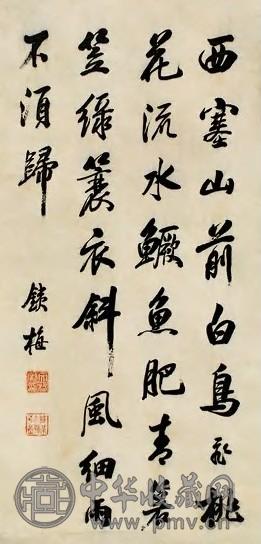 西塞山前白鳥飛桃
花流水鱖魚肥青箬
笠綠簑衣斜風細雨
不須歸
梅
中华收藏网
www.pmv.cn